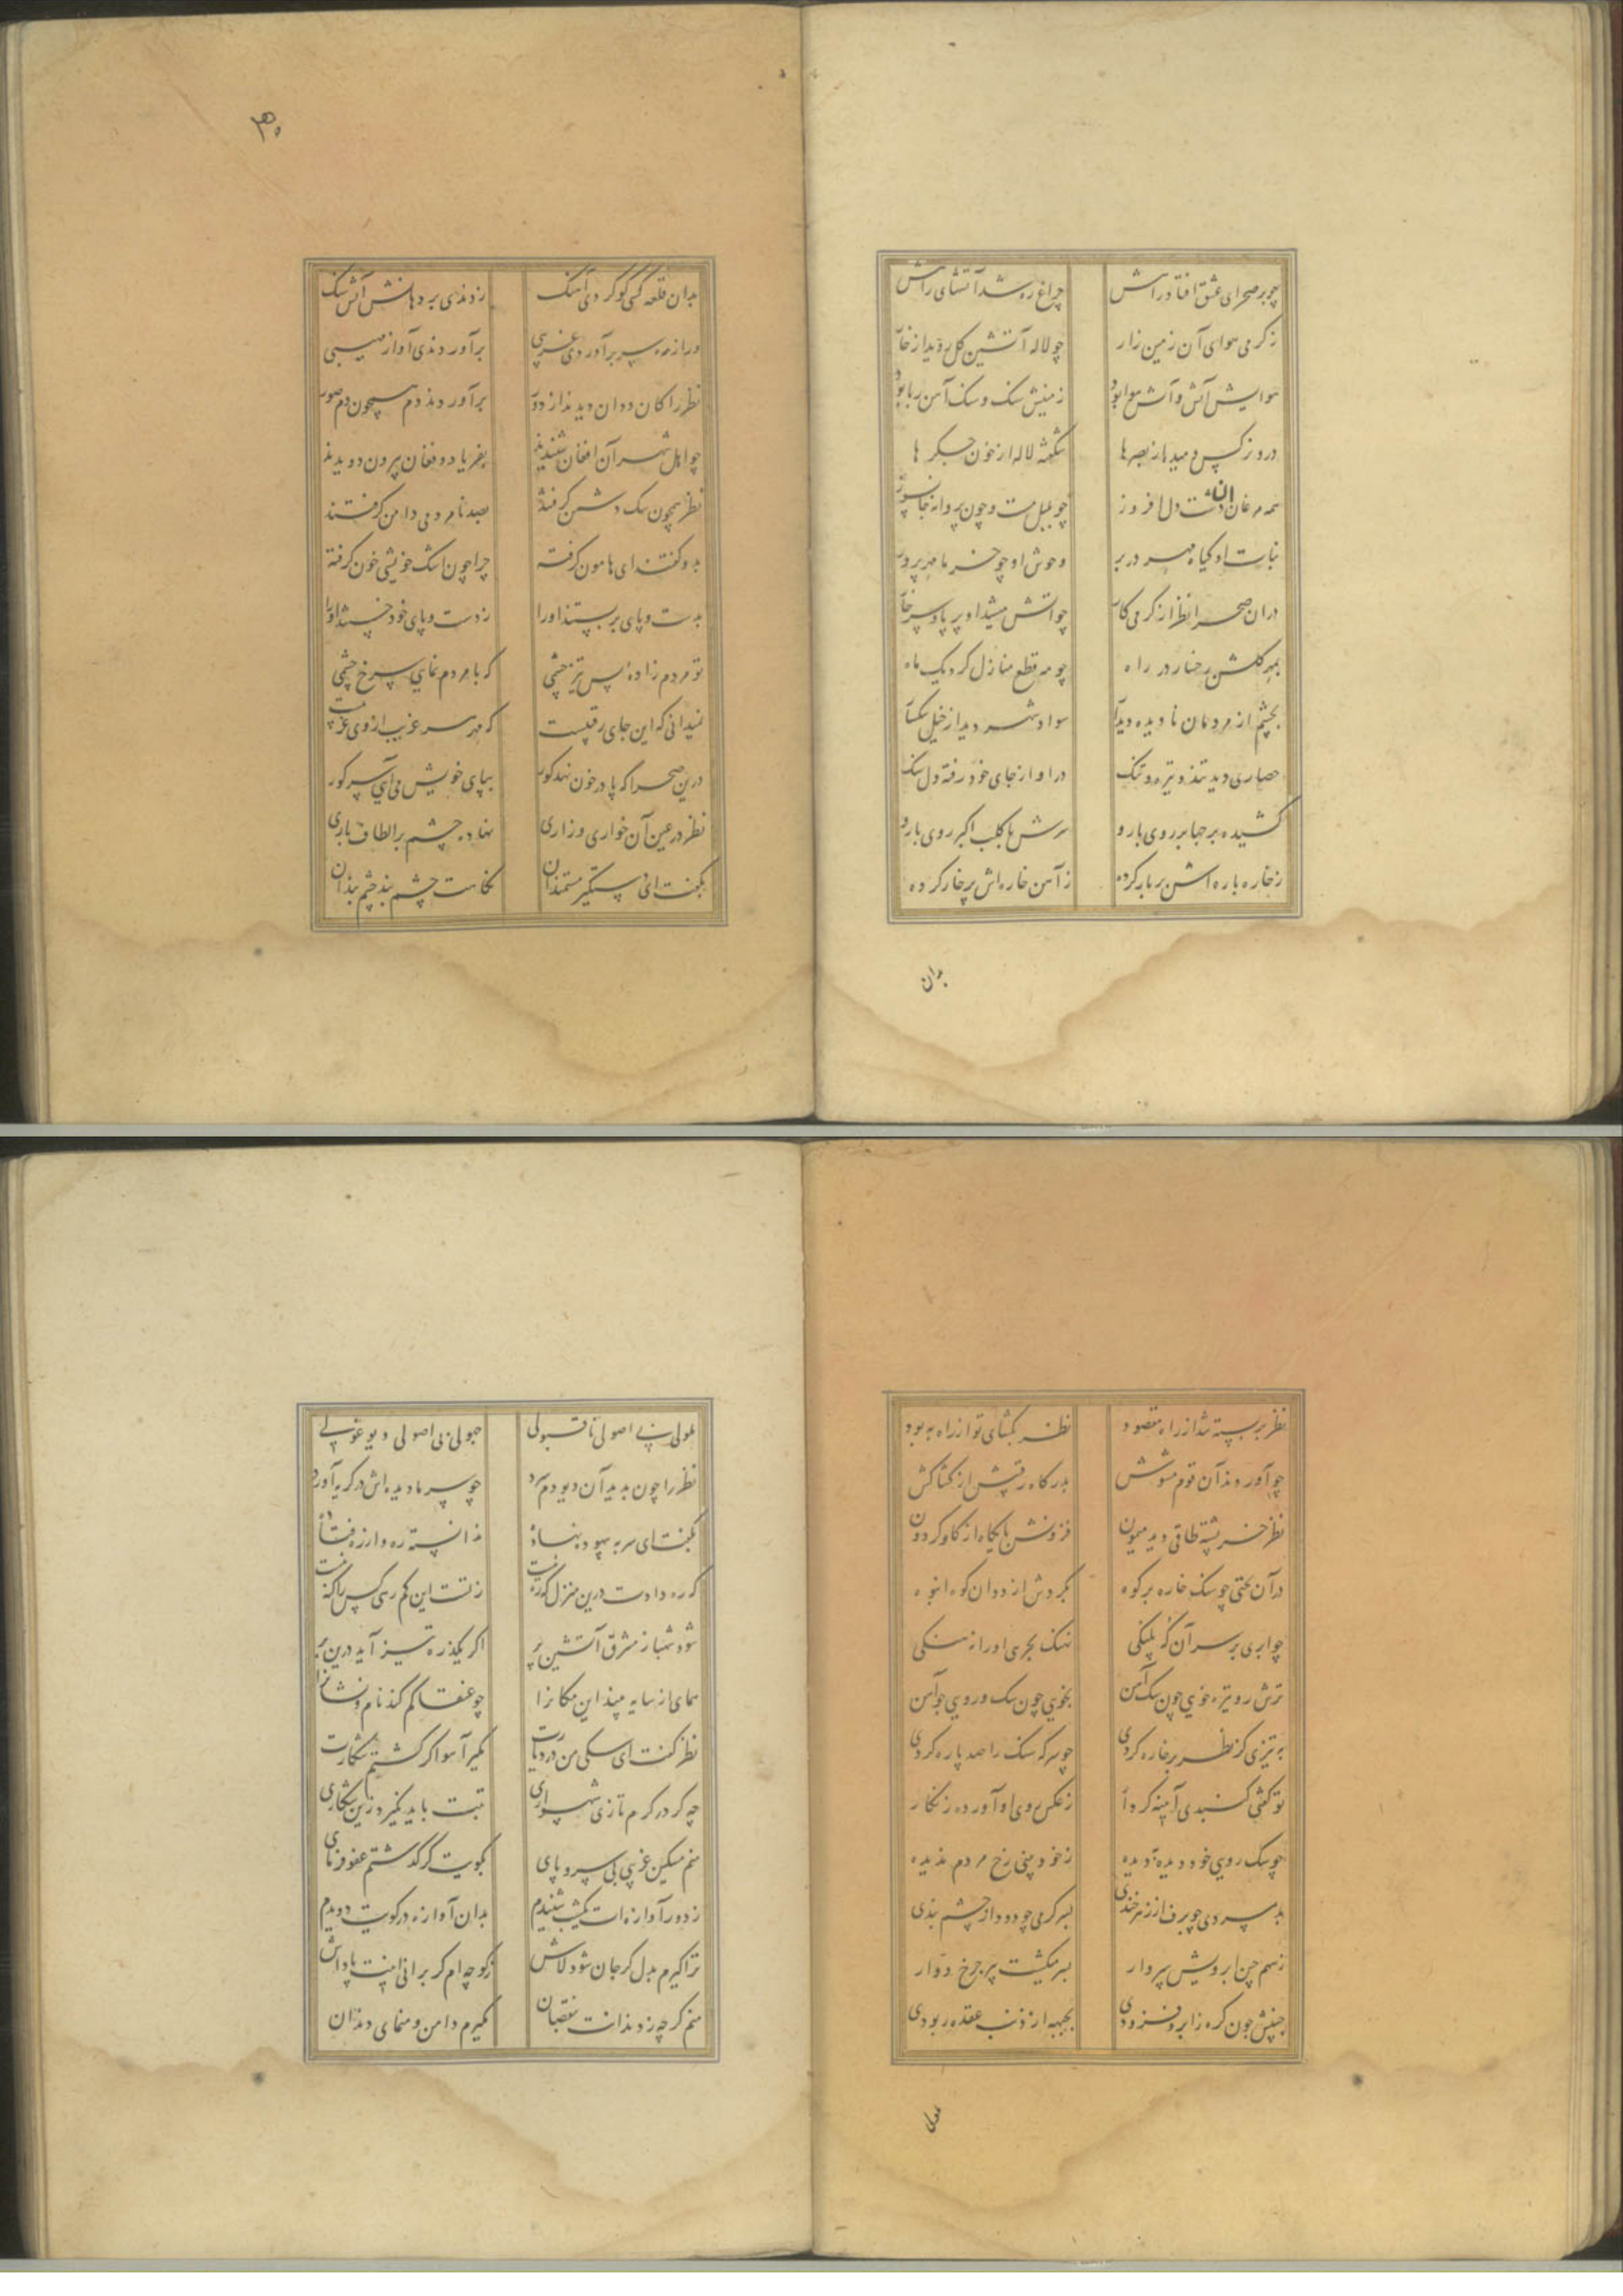 چو بر صحرای عشق افتاد راهش چراغ ره شد آتشهای راهش
ز کرمی هوای آن زمین زار چو لاله آتشین کل روید از خار
هوایش آتش و آتش هوا بود زمینش سنک و سنک آهن ربا بود
درو نرکس دمیده از بصرها شکفته لاله از خون جکرها
همه مرغان آن دشت دل افروز چو بلبل مست و چون پروانه جانسوز
نبات او کیاه مهر در بر وحوش او چو خرما مهرپرور
در آن صحرا نظر از کرمی کار چو آتش میشد او بر پا و سر خار
بمهر کلشن رخسار در راه چو مه قطع منازل کرد یک ماه
بچشم از مردمان نادیده دیار سواد شهر دید از خیل سکسار
حصاری دید تند و تیره و تنک در او از جای خود رفته دل سنک
کشیده برجها بر روی بارو سرش با کلب اکبر روی بارو
ز خاره باره اش پر بار کرده ز آهن خاره اش پر خار کرده
بدان
۳۵
بدان قلعه کسی کو کردی آهنک زدندی بر دهانش آتش سنک
ور از ره سر برآوردی غریبی برآوردندی آواز مهیبی
نظر را کان ددان دیدند از دور برآوردند دم همچون دم صور
چو اهل شهر آن افغان شنیدند بفریاد و فغان بیرون دویدند
نظر همچون سک دشمن کرفتند بصد نامردمی دامن کرفتند
بدو کفتند ای هامون کرفته چرا چون اشک خویشی خون کرفته
بدست و پای بر بستند او را ز دست و پای خود خستند او را
تو مردم زاده پس تیز چشمی که با مردم نمایی سرخ چشمی
نمیدانی که این جای رقیبست که مهر سر غریب از وی غریبست
درین صحرا که پا در خون نهد کور بپای خویش می آیی سر کور
نظر در عین آن خواری و زاری نهاده چشم بر الطاف باری
بکفت ای دستکیر مستمندان نکاهت چشم بند چشم بندان
نظر بر بسته شد از راه مقصود نظر بکشای تو از راه بهبود
چو آوردند آن قوم مشوش بدرکاه رقیبش از کشاکش
نظر خرپشته طاقی دید میمون فزونش پایکاه از کاو کردون
در آن تختی چو سنک خاره بر کوه بکردش از ددان کوه انبوه
چو ابری بر سر آن که پلنکی نهنک بحری او را ز سنکی
ترش رو تیره خویی چون سک آهن بخویی چون سک و رویی چو آهن
به تیزی کر نظر بر خاره کردی چو سرکه سنک را صد پاره کردی
تو کفتی کنبدی آیینه کردار ز عکس روی او آورده زنکار
چو سک روی خود و دیده ندیده ز خود بینی رخ مردم ندیده
بدم سردی چو برف از زهر خندی بسر کرمی چو دود از چشم بندی
ز سهم چین ابرویش پری وار بسر میکشت پر چرخ دوار
جبینش چون کره ز ابرو فزودی بجبهه از ذنب عقده ربودی
ملولی
ملولی بی اصولی ناقبولی جهولی بی اصولی دیو غولی
نظر را چون بدید آن دیو دم سرد چو سرما دیده اش در کریه آورد
بکفت ای سر به بیهوده نهاده ندانسته ره و از ره فتاده
که ره دادت درین منزل که ره نیست
شود شهباز مشرق آتشین پر اکر یکذره تیز آید درین بر
همای از سایه بیند این مکانرا چو عنقا کم کند نام و نشانرا
نظر کفت ای سکی من در دیارت مکیر آهو اکر کشتم شکارت
چه کر در کرم تازی شهسواری تبت باید مکیر وزین شکاری
منم مسکین غریبی بی سر و پای بکویت کر کذشتم عفو فرمای
ز دور آوازه ات یکشب شنیدم بدان آوازه در کویت دویدم
ترا کیرم بدل کر جان شود لاش ز کوچه ام کر برانی نیست پاداش
منم کر چه ز دندانت بنقصان مکیرم دامن و منمای دندان